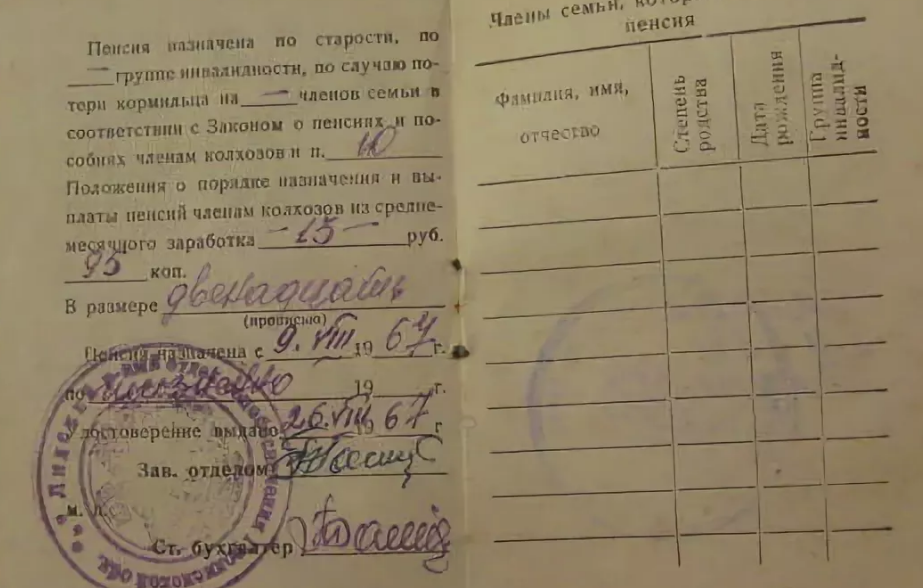 Пенсия назначена по старости, по
— группе инвалидности, по случаю по-
тери кормильца на — членов семьи в
соответствии с Законом о пенсиях и по-
собиях членам колхозов и п. 10
Положения о порядке назначения и вы-
платы пенсий членам колхозов из средне-
месячного заработка – 15 – руб.
95 коп.
В размере двенадцать
(прописью)
Пенсия назначена с 9. VIII 1967 г.
по 19 г.
Удостоверение выдано 26. VIII 1967 г
Зав. отделом
м. п.
Ст. бухгалтер
Члены семьи,
пенсия
Фамилия, имя,
отчество
Степень
родства
Дата
рождения
Группа
инвалид-
ности